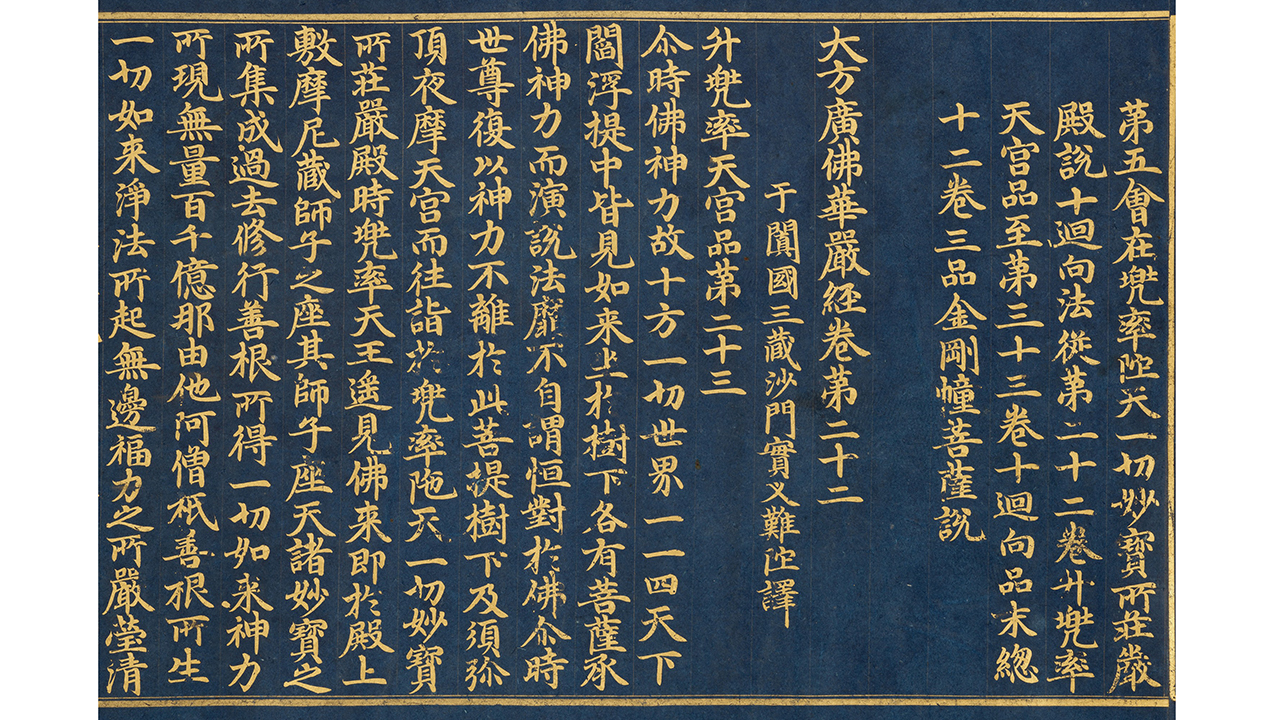 第五會在兜率陀天一切妙寳所莊嚴
殿說十迴向法從第二十二卷升兜率
天宮品至第三十三卷十迴向品末緫
十二卷三品金剛幢菩薩說
大方廣佛華嚴経卷第二十二
于闐國三藏沙門實叉難陀譯
升兜率天宮品第二十三
尒時佛神力故十方一切世界一一四天下
閻浮提中皆見如来坐於樹下各有菩薩承
佛神力而演說法靡不自謂恒對於佛尒時
世尊復以神力不離於此菩提樹下及須弥
頂夜摩天宮而往詣於兜率陁天一切妙寶
所莊嚴殿時兜率天王遥見佛来即於殿上
敷摩尼藏師子之座其師子座天諸妙寶之
所集成過去修行善根所得一切如来神力
所現無量百千億那由他阿僧祇善根所生
一切如来淨法所起無邊福力之所嚴瑩清